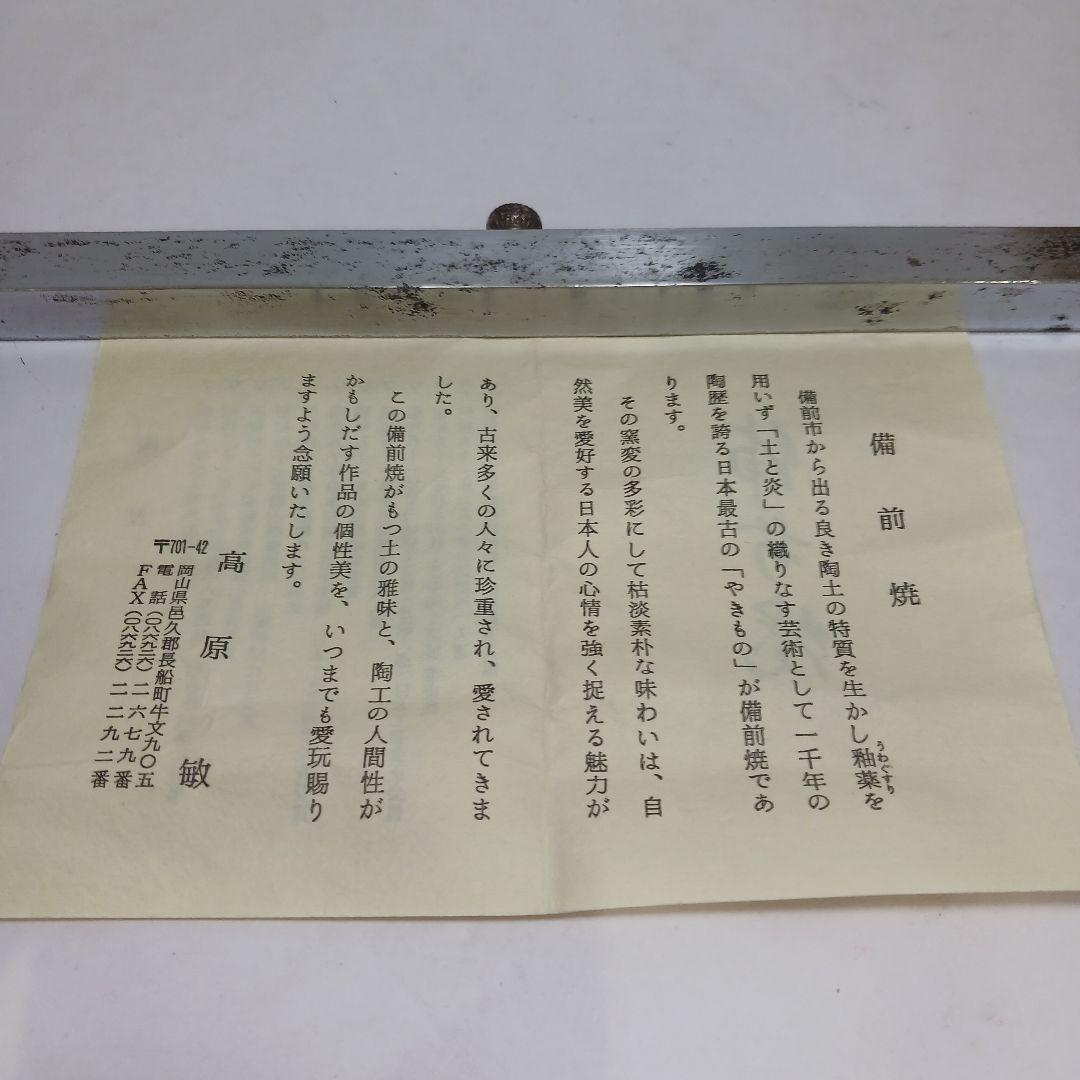 備前焼
備前市から出る良き陶土の特質を生かし釉薬を
うわぐすり
用いず「土と炎」の織りなす芸術として一千年の
陶歴を誇る日本最古の「やきもの」が備前焼であ
ります。
その窯変の多彩にして枯淡素朴な味わいは、自
然美を愛好する日本人の心情を強く捉える魅力が
あり、古来多くの人々に珍重され、愛されてきま
した。
この備前焼がもつ土の雅味と、陶工の人間性が
かもしだす作品の個性美を、いつまでも愛玩賜り
ますよう念願いたします。
高原敏
〒701-42
岡山県邑久郡長船町牛文九〇五
電話(〇八六九二六)二六七九番
FAX(〇八六九二六)二二九二番